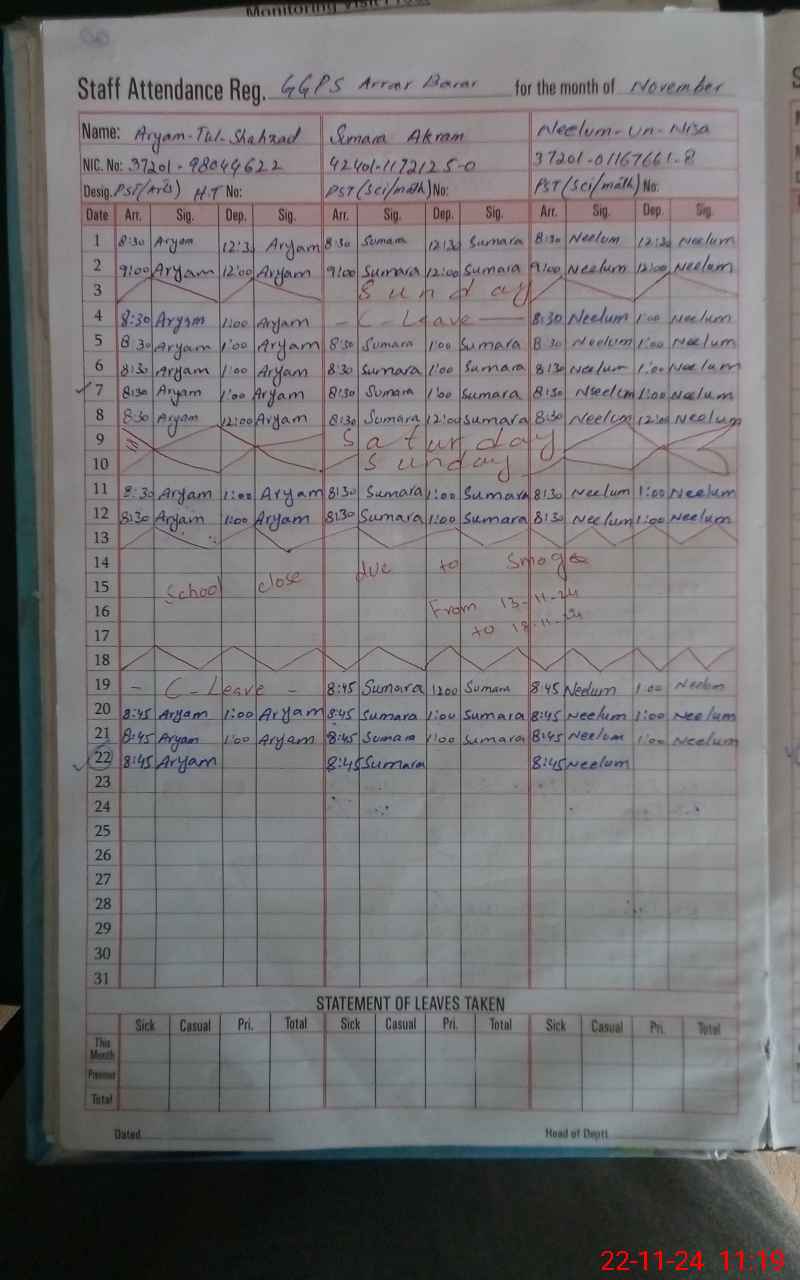 Monitoring Visit
Staff Attendance Reg. GGPS Arrar Barar for the month of November
Name: Aryam-Tul-Shahzad Sumara Akram Neelum-Un-Nisa
NIC. No: 37201-98044622 42401-1172125-0 37201-01167661-8
Desig. PST(Arts) H.T No: PST(Sci/math) No: PST(Sci/math) No:
Date Arr. Sig. Dep. Sig. Arr. Sig. Dep. Sig. Arr. Sig. Dep. Sig.
1 8:30 Aryam 12:30 Aryam 8:30 Sumara 12:30 Sumara 8:30 Neelum 12:30 Neelum
2 9:00 Aryam 12:00 Aryam 9:00 Sumara 12:00 Sumara 9:00 Neelum 12:00 Neelum
3 Sunday
4 8:30 Aryam 1:00 Aryam - C-Leave - 8:30 Neelum 1:00 Neelum
5 8:30 Aryam 1:00 Aryam 8:30 Sumara 1:00 Sumara 8:30 Neelum 1:00 Neelum
6 8:30 Aryam 1:00 Aryam 8:30 Sumara 1:00 Sumara 8:30 Neelum 1:00 Neelum
7 8:30 Aryam 1:00 Aryam 8:30 Sumara 1:00 Sumara 8:30 Neelum 1:00 Neelum
8 8:30 Aryam 12:00 Aryam 8:30 Sumara 12:00 Sumara 8:30 Neelum 12:00 Neelum
9 Saturday
10 Sunday
11 8:30 Aryam 1:00 Aryam 8:30 Sumara 1:00 Sumara 8:30 Neelum 1:00 Neelum
12 8:30 Aryam 1:00 Aryam 8:30 Sumara 1:00 Sumara 8:30 Neelum 1:00 Neelum
13
14
15 School close due to Smog
16 From 13-11-24
17 to 18-11-24
18
19 - C-Leave - 8:45 Sumara 1:00 Sumara 8:45 Neelum 1:00 Neelum
20 8:45 Aryam 1:00 Aryam 8:45 Sumara 1:00 Sumara 8:45 Neelum 1:00 Neelum
21 8:45 Aryam 1:00 Aryam 8:45 Sumara 1:00 Sumara 8:45 Neelum 1:00 Neelum
22 8:45 Aryam 8:45 Sumara 8:45 Neelum
23
24
25
26
27
28
29
30
31
STATEMENT OF LEAVES TAKEN
Sick Casual Pri. Total Sick Casual Pri. Total Sick Casual Pri. Total
This Month
Previous
Total
Dated Head of Deptt
22-11-24 11:19